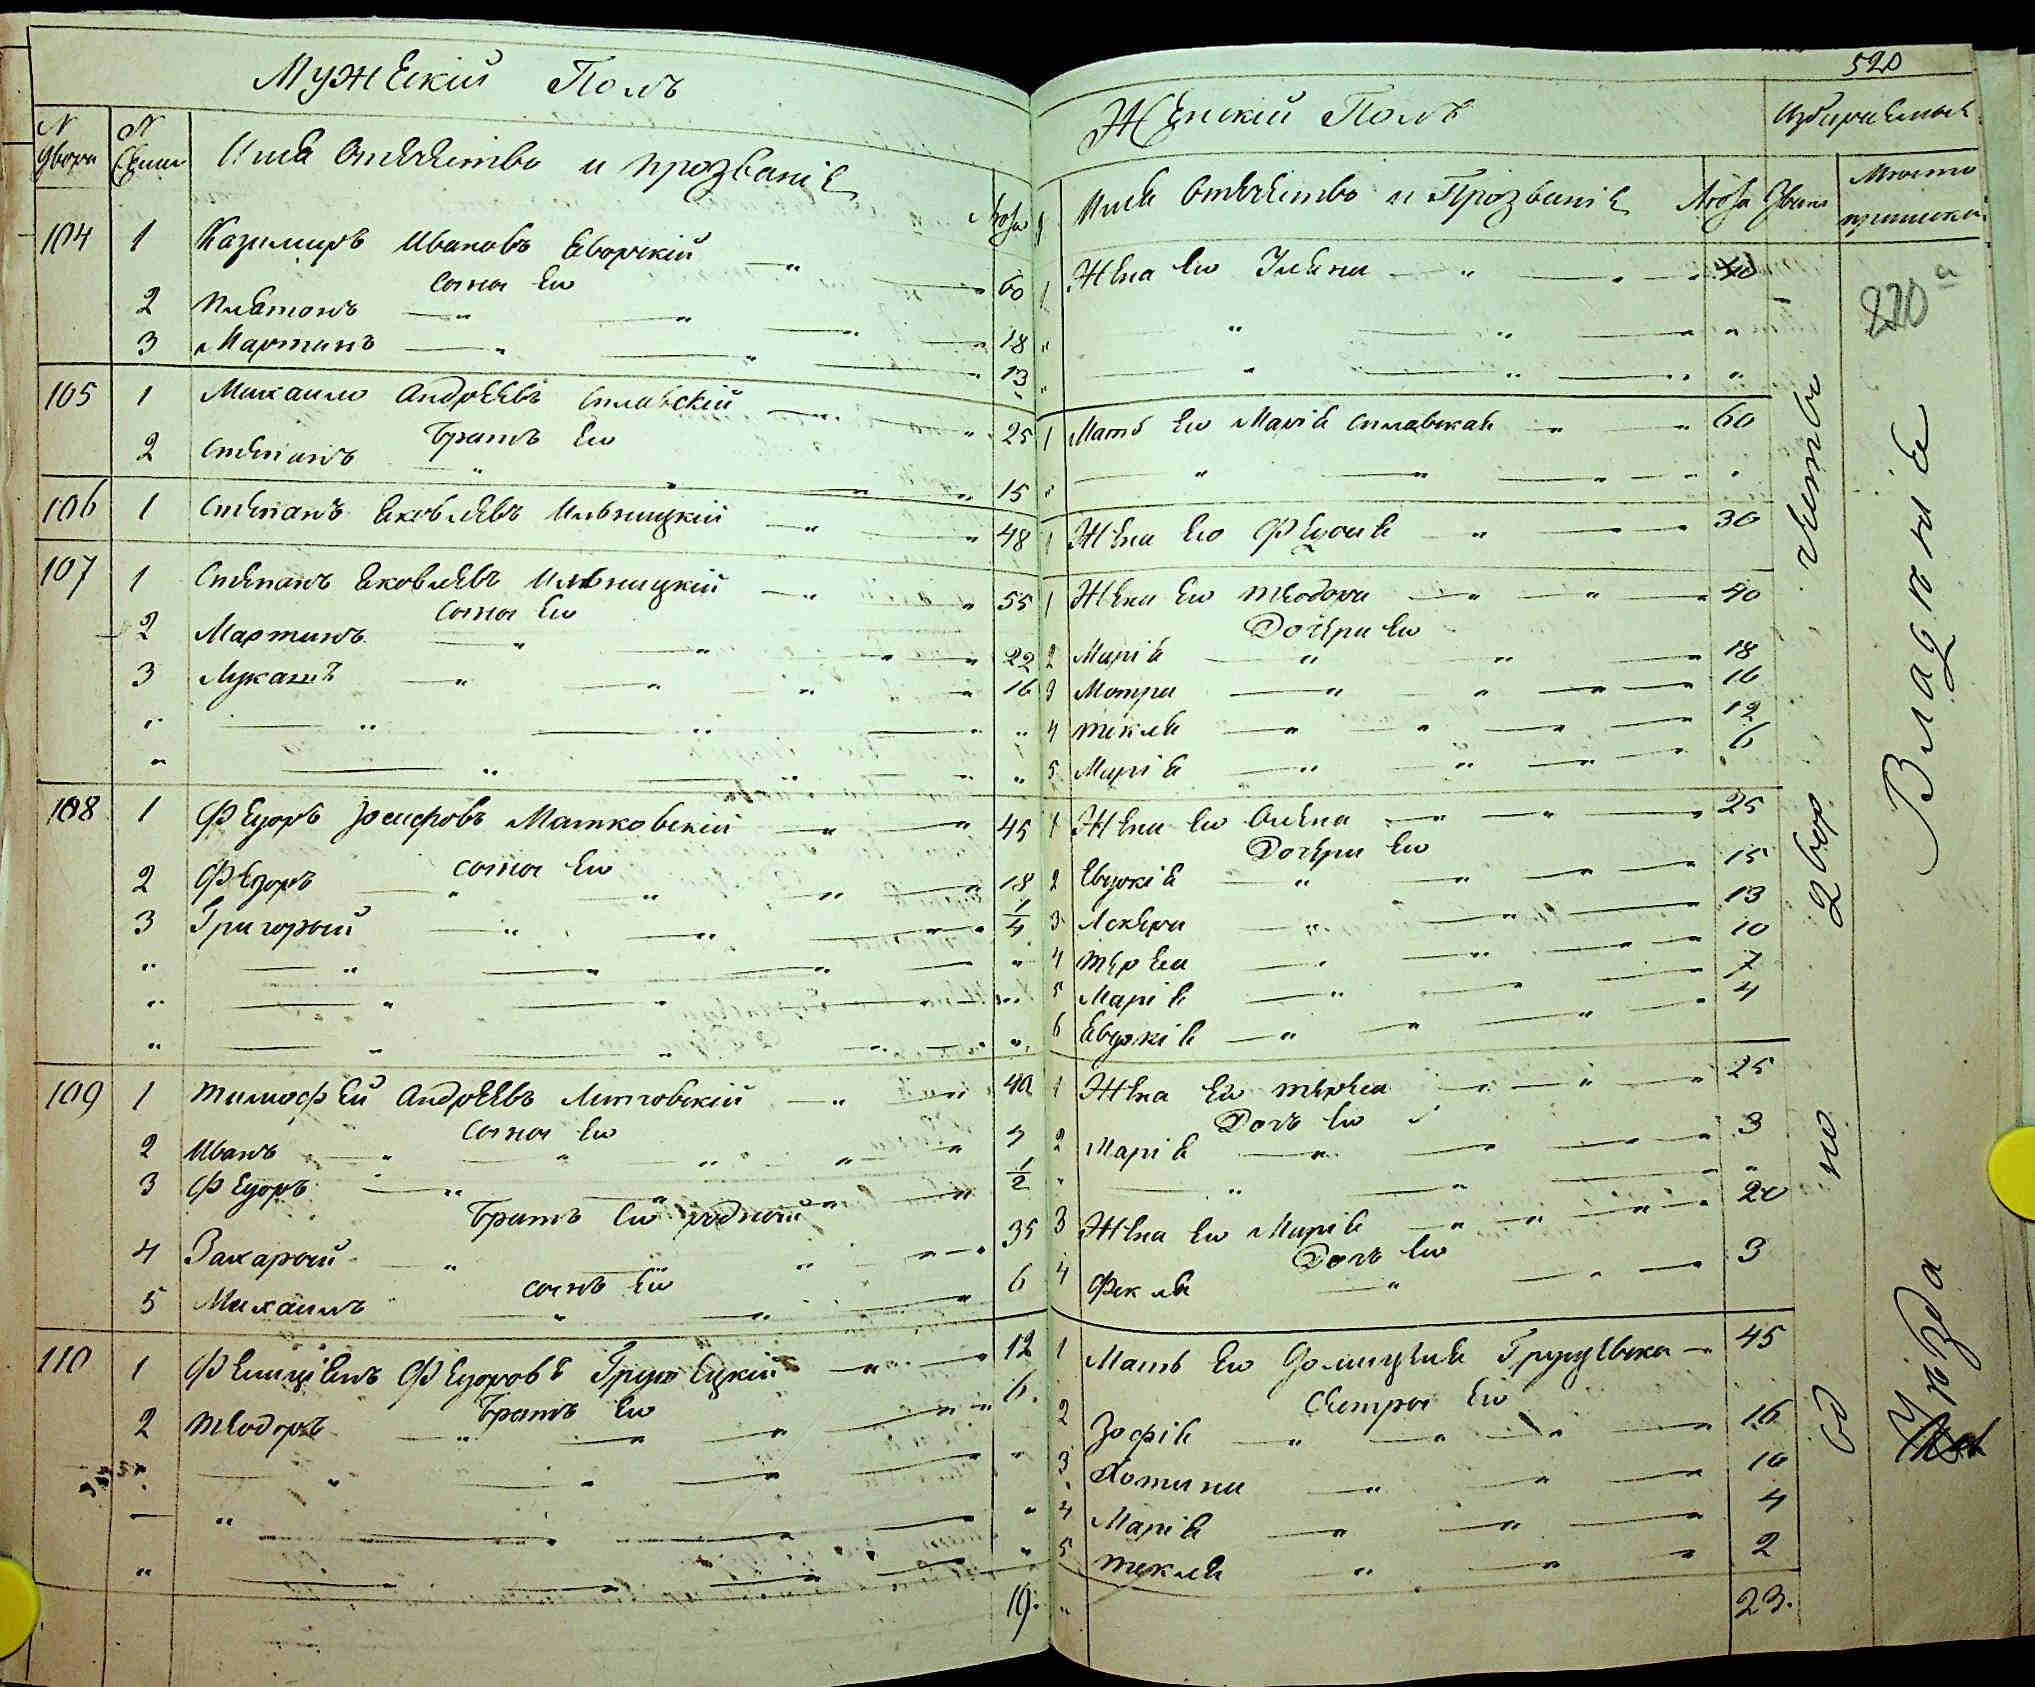 Мужескій Полъ
N двора
N Семи
Имя Отечество и прозваніе
Лѣта
104 1 Казимиръ Ивановъ Яворскій 60
Сыны Его
2 Платонъ 18
3 Мартинъ 13
105 1 Михайло Андреевъ Сплавскій 25
Братъ Его
2 Степанъ 15
106 1 Степанъ Яковлевъ Ильницкій 48
107 1 Степанъ Яковлевъ Ильницкій 55
Сыны Его
2 Мартинъ 22
3 Лукашъ 16
108 1 Федоръ Іосифовъ Матковскій 45
сыны Его
2 Федоръ 18
3 Григорый 1/4
109 1 Тимофей Андреевъ Литговскій 40
Сыны Его
2 Иванъ 7
3 Федоръ 1/2
Братъ Его родный
4 Захарый 35
сынъ Его
5 Михаилъ 6
110 1 Федоровъ 12
Братъ Его
2 Теодоръ 6.
19.
520
Женскій Полъ
Избираемые
Имя Отечество и Прозваніе
Лѣта
Званіе
Мѣсто приписки
1 Жена Его 40
220 а
1 Мать Его Марія Сплавская 60
1 Жена Его Федосія 30
1 Жена Его Теодора 40
Дочери Его
2 Марія 18
3 Мотря 16
4 Текля 12
5 Марія 6
1 Жена Его Олена 25
Дочери Его
2 Евдокія 15
3 13
4 Тереса 10
5 Марія 7
6 Евдокія 4
1 Жена Его Тереса 25
Дочь Его
2 Марія 3
3 Жена Его Марія 20
Дочь Его
4 Фекля 3
1 Мать Его 45
Сестры Его
2 Зофія 16
3 10
4 Марія 4
5 Текля 2
23.
по двор
Владеніе
Уезда